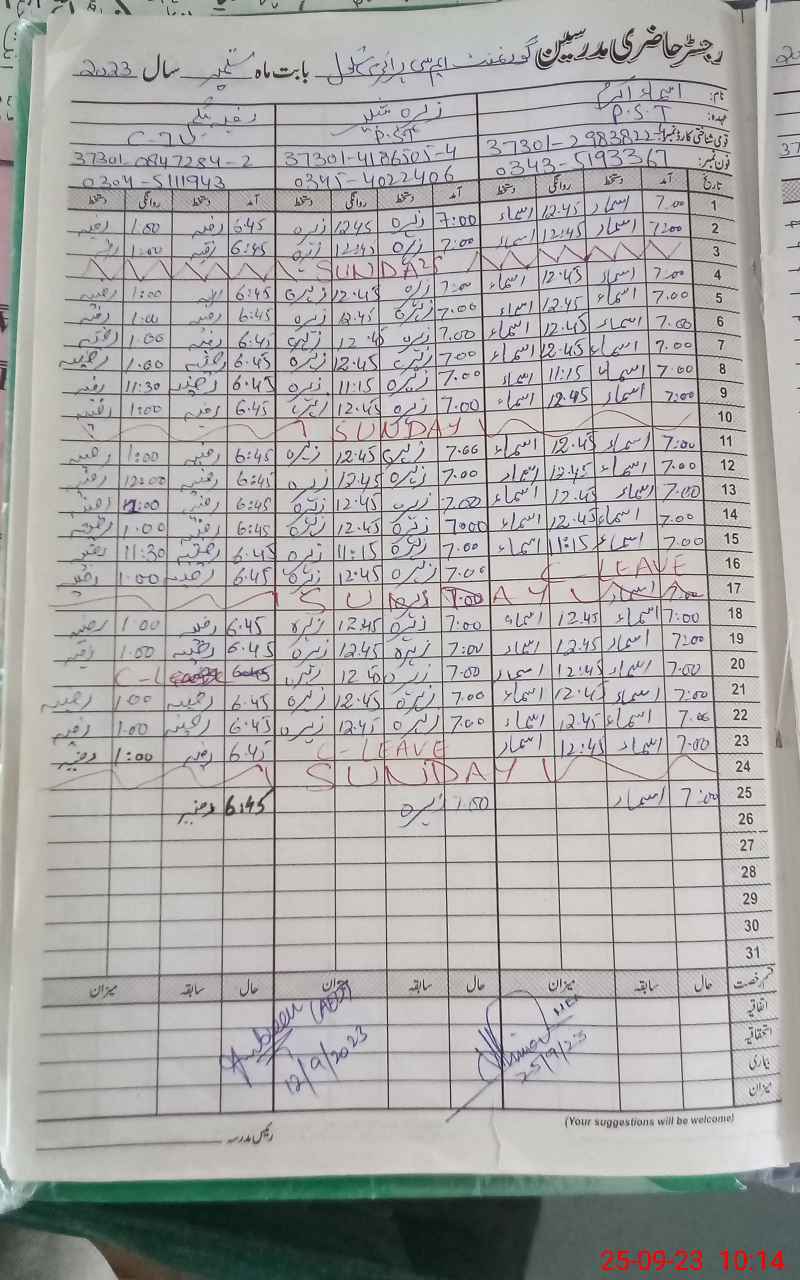 رجسٹر حاضری مدرسین گورنمنٹ ایم سی پرائمری سکول بابت ماہ ستمبر سال 2023
نام: اسماء زہرہ رضیہ بیگم
عہدہ: P.S.T P.ST C-IV
قومی شناختی کارڈ نمبر 37301-2983822- 37301-4186505-4 37301-0847284-2
فون نمبر: 0343-5193367 0345-4022406 0304-5111943
تاریخ آمد دستخط روانگی دستخط آمد دستخط روانگی دستخط آمد دستخط روانگی دستخط
1 7.00 اسماء 12.45 اسماء 7:00 زہرہ 12.45 زہرہ 6.45 رضیہ 1.00 رضیہ
2 7:00 اسماء 12:45 اسماء 7.00 زہرہ 12:45 زہرہ 6:45 رضیہ 1:00
3 SUNDAY
4 7:00 اسماء 12.45 اسماء 7:00 زہرہ 12.45 زہرہ 6.45 1:00 رضیہ
5 7.00 اسماء 12.45 اسماء 7.00 زہرہ 12.45 زہرہ 6.45 رضیہ 1:00 رضیہ
6 7.00 اسماء 12.45 اسماء 7.00 زہرہ 12.45 زہرہ 6.45 رضیہ 1.00 رضیہ
7 7.00 اسماء 12.45 اسماء 7.00 زہرہ 12.45 زہرہ 6.45 رضیہ 1.00 رضیہ
8 7.00 اسماء 11:15 اسماء 7.00 زہرہ 11:15 زہرہ 6.45 رضیہ 11:30 رضیہ
9 7:00 اسماء 12.45 اسماء 7.00 زہرہ 12.45 زہرہ 6.45 رضیہ 1:00 رضیہ
10 SUNDAY
11 7:00 اسماء 12.45 اسماء 7.00 زہرہ 12.45 زہرہ 6:45 رضیہ 1:00 رضیہ
12 7.00 اسماء 12.45 اسماء 7.00 زہرہ 12.45 زہرہ 6:45 رضیہ 12:00 رضیہ
13 7.00 اسماء 12.45 اسماء 7.00 زہرہ 12.45 زہرہ 6:45 رضیہ :00 رضیہ
14 7.00 اسماء 12.45 اسماء 7:00 زہرہ 12.45 زہرہ 6:45 رضیہ 1.00 رضیہ
15 7.00 اسماء 11:15 اسماء 7.00 زہرہ 11:15 زہرہ 6.45 رضیہ 11:30 رضیہ
16 C-LEAVE 7.00 زہرہ 12.45 زہرہ 6.45 رضیہ 1:00 رضیہ
17 7.00 اسماء SUNDAY 7.00 زہرہ
18 7:00 اسماء 12.45 اسماء 7:00 زہرہ 12.45 زہرہ 6.45 رضیہ 1:00 رضیہ
19 7:00 اسماء 12.45 اسماء 7:00 زہرہ 12.45 زہرہ 6.45 رضیہ 1.00 رضیہ
20 7.00 اسماء 12:45 اسماء 7.00 زہرہ زہرہ 6.45 C-Leave
21 7:00 اسماء 12.45 اسماء 7.00 زہرہ 12.45 زہرہ 6.45 رضیہ 1.00 رضیہ
22 7.00 اسماء 12.45 اسماء 7.00 زہرہ 12.45 زہرہ 6.45 رضیہ 1.00 رضیہ
23 7.00 اسماء 12:45 اسماء C-LEAVE 6.45 رضیہ 1:00 رضیہ
24 SUNDAY
25 7:00 اسماء 7.00 زہرہ 6:45 رضیہ
26
27
28
29
30
31
قسم رخصت حال سابقہ میزان حال سابقہ میزان حال سابقہ میزان
اتفاقیہ
استحقاقیہ
بیماری
میزان
(AEO)
12/9/2023
25/9/23
(Your suggestions will be welcome)
رئیس مدرسہ
25-09-23 10:14